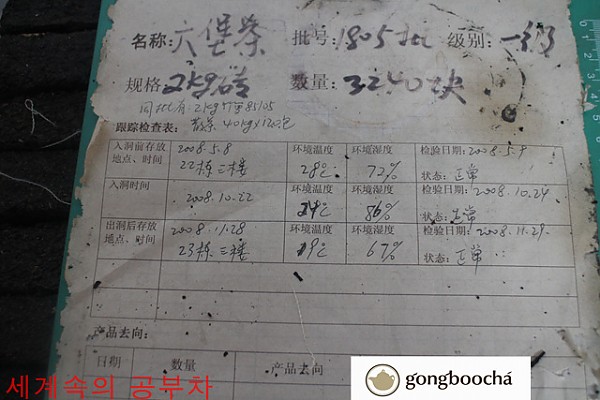 名称: 六堡茶 批号: 1805批 级别: 一级
规格 2kg砖 数量: 3240块
跟踪检查表: 40kg×120包
入洞前存放地点、时间 2008.5.8 22栋三楼 环境温度 28℃ 环境湿度 72% 检验日期: 2008.5.9 状态: 正常
入洞时间 2008.10.22 环境温度 24℃ 环境湿度 86% 检验日期: 2008.10.24 状态: 正常
出洞后存放地点、时间 2008.11.28 23栋三楼 环境温度 19℃ 环境湿度 67% 检验日期: 2008.11.29 状态: 正常
产品去向:
日期 数量 产品去向
세계속의 공부차
gongboochá